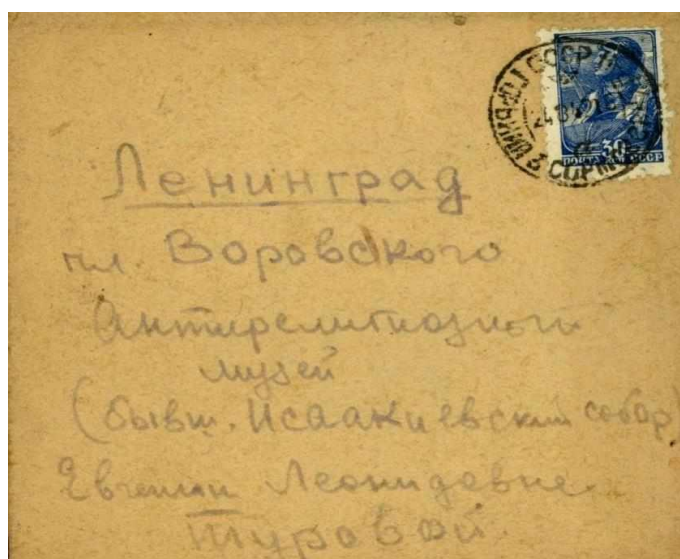 СССР
30
ПОЧТА СССР
Ленинград
пл. Воровского
Антирелигиозный
музей
(бывш. Исаакиевский собор)
Евгении Леонидовне
Туровой